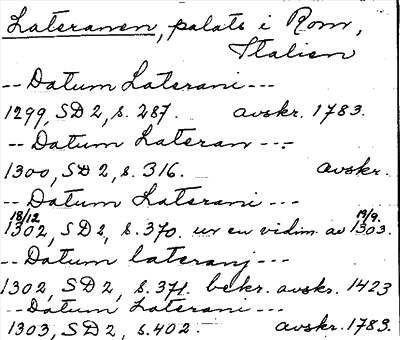 Lateranen, palats i Rom,
Italien
-- Datum Laterani ---
1299, SD 2, s. 287. avskr. 1783.
-- Datum Lateran ---
1300, SD 2, s. 316. avskr.
-- Datum Laterani ---
18/12 19/9.
1302, SD 2, s. 370. ur en vidim. av 1303.
-- Datum lateranj ---
1302, SD 2, s. 371. bekr. avskr. 1423
-- Datum Laterani ---
1303, SD 2, s. 402. avskr. 1783.